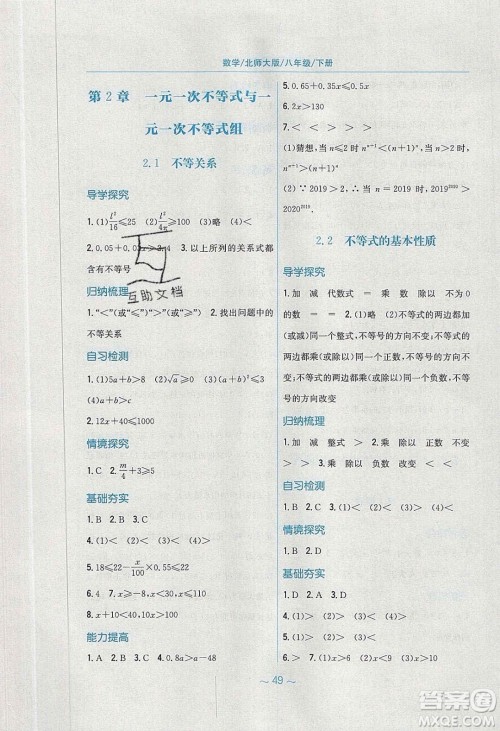 数学/北师大版/八年级/下册
第2章 一元一次不等式与一
元一次不等式组
2.1 不等关系
导学探究
1. (1) l²/16≤25 (2) l²/4π≥100 (3)略 (4)<
2. 0.05+0.02x>2.4 3.以上所列的关系式都
含有不等号
归纳梳理
1.“<”(或“≤”)“>”(或“≥”) 2.找出问题中的
不等关系
自习检测
1.(1)5a+b>8 (2)√a≥0 (3)<
(4)a+b>c
2.200≤x≤1000
情境探究
1.C 2. m/4+3≥5
基础夯实
1.B 2.B 3.C 4.(1)< (2)< (3)<
(4)<
5.18≤22- x/100×0.55≤28
6.0≤x≤400 7.18≤x≤22
8.x+10<0 9.10≤x≤30
能力提高
1.A 2.C 3.C 4.0.8a>a-48
5.0.65+0.1x≤0.5x
6.x+2x≤10
7.< > > > >
(1)猜想,当n≤2时 nⁿ⁺¹<(n+1)ⁿ,当n>2
时,nⁿ⁺¹>(n+1)ⁿ.
(2)∵2019>2,∴当n=2019时,2019²⁰²⁰>
2020²⁰¹⁹.
2.2 不等式的基本性质
导学探究
1.加 减 代数式 = 乘 数 除以 不为0
的数 = = (1)略 (2)不等式的两边都加
(或减)同一个整式,不等号的方向不变;不等式
的两边都乘(或除以)同一个正数,不等号的方
向不变;不等式的两边都乘(或除以)同一个负数,不等
号的方向改变
归纳梳理
加 减 整式 > > 乘 除以 正数 不变
> > 乘 除以 负数 改变 < <
自习检测
1.B 2.C
情境探究
1.B 2.D
基础夯实
1.(1)> (2)> (3)< (4)> (5)<
(6)<
2.(1)x>6 (2)x>7 3.D 4.D
~ 49 ~
互助文档
答案圈
MXQE.COM